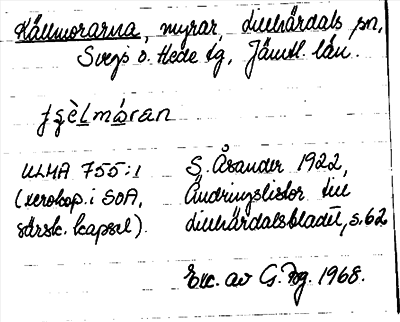 Källmorarna, myrar, Lillhärdals sn,
Svegs o. Hede tg, Jämtl. län.
ʈʂè̱lmá̱ran
ULMA 755:1
(xerokop. i SOA,
särsk. kapsel).
S. Åsander 1922,
Ändringslistor till
Lillhärdalsbladet, s. 62
Exc. av G. 1968.